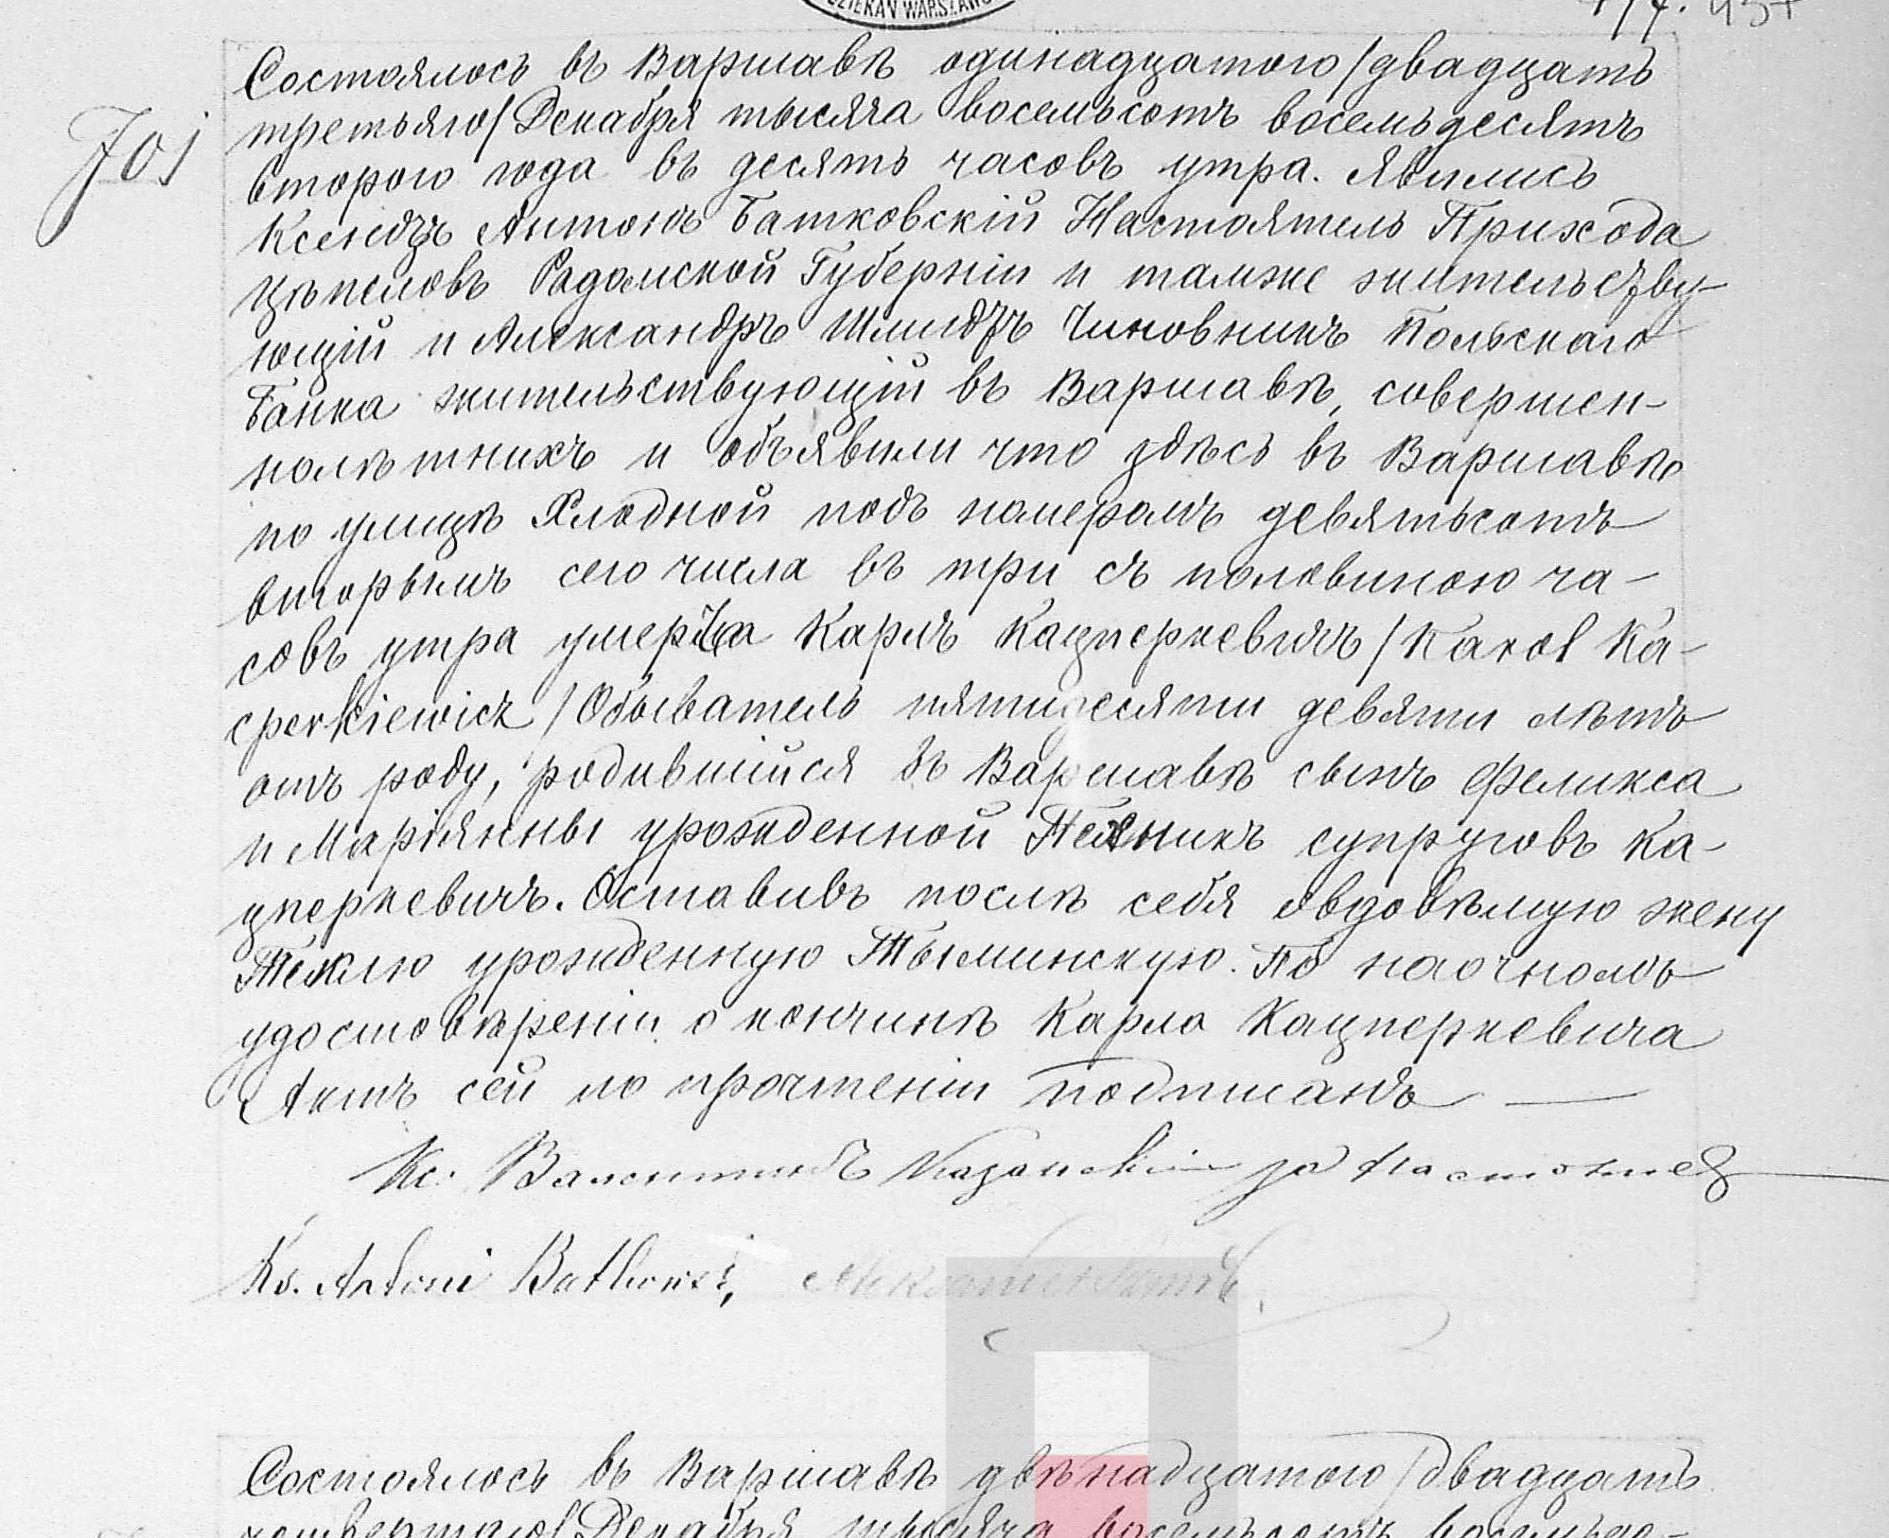 DZIEKAN WARSZAWS
Состоялось въ Варшавѣ одинадцатого /двадцать
701
третьяго/ Декабря тысяча восемьсотъ восемьдесятъ
второго года въ десять часовъ утра. Явились
Ксендзъ Антонъ Батковскій Настоятель Прихода
Цѣпеловъ Радомской Губерніи и тамже жительству-
ющій и Александръ Шмидтъ Чиновникъ Польскаго
Банка жительствующій въ Варшавѣ, совершен-
нолѣтнихъ и объявили что здѣсь въ Варшавѣ
по улицѣ Хлодной подъ номеромъ девятьсотъ
вторымъ сего числа въ три съ половиною ча-
совъ утра умеръ Карлъ Кацперкевичъ /Karol Ka-
cperkiewicz/ Обыватель пятидесяти девяти лѣтъ
отъ роду, родившійся въ Варшавѣ сынъ Феликса
и Маріянны урожденной супруговъ Ка-
цперкевичъ. Оставивъ послѣ себя овдовѣлую жену
Теклю урожденную Тыминскую. По наочномъ
удостовѣреніи о кончинѣ Карла Кацперкевича
Актъ сей по прочтеніи подписанъ —
Кс. Валентинъ за
Ks. Antoni Batkowski,
Состоялось въ Варшавѣ двѣнадцатого /двадцать
четвертаго/ Декабря тысяча восемьсотъ восемьде-